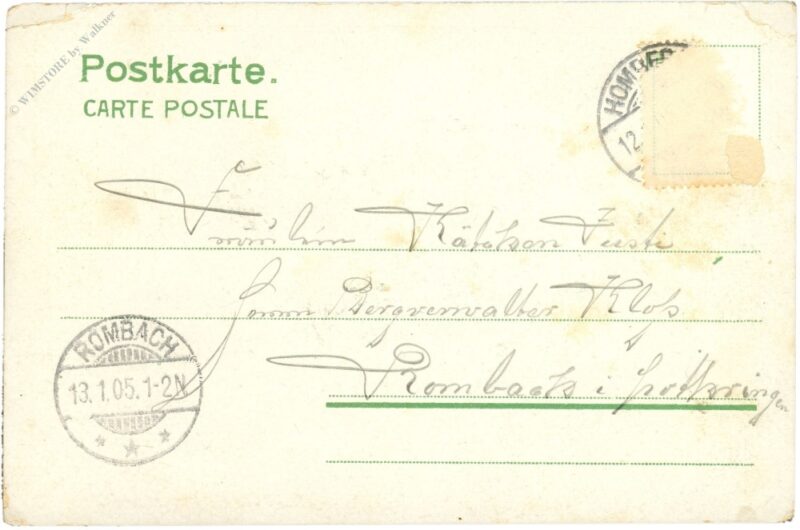 © WIMSTORE by Walkner
Postkarte.
CARTE POSTALE
HOMBERG
12.
Fräulein Käthchen
Bergverwalter Klos
Rombach i Lothringen
ROMBACH
13.1.05.1-2N